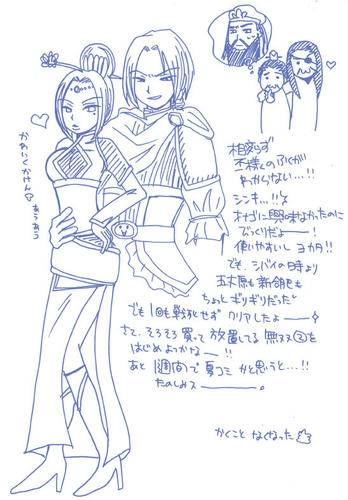 かわいくかけん♡
あらあら
相変らず
丕様のふくが
わからない…!!
シンキ…!!
オナゴに興味なかったのに
びっくりだよー!
使いやすいし ヨカタ!!
でも、シバイの時より
五丈原も新合肥も
ちょっとギリギリだった
でも1回も戦死せず クリアしたよ
さて、そろそろ買って放置してる 無双②を
はじめようかなー!!
あと 1週間で夏コミ かと思うと…!!
たのしみス
かくこと なくなった